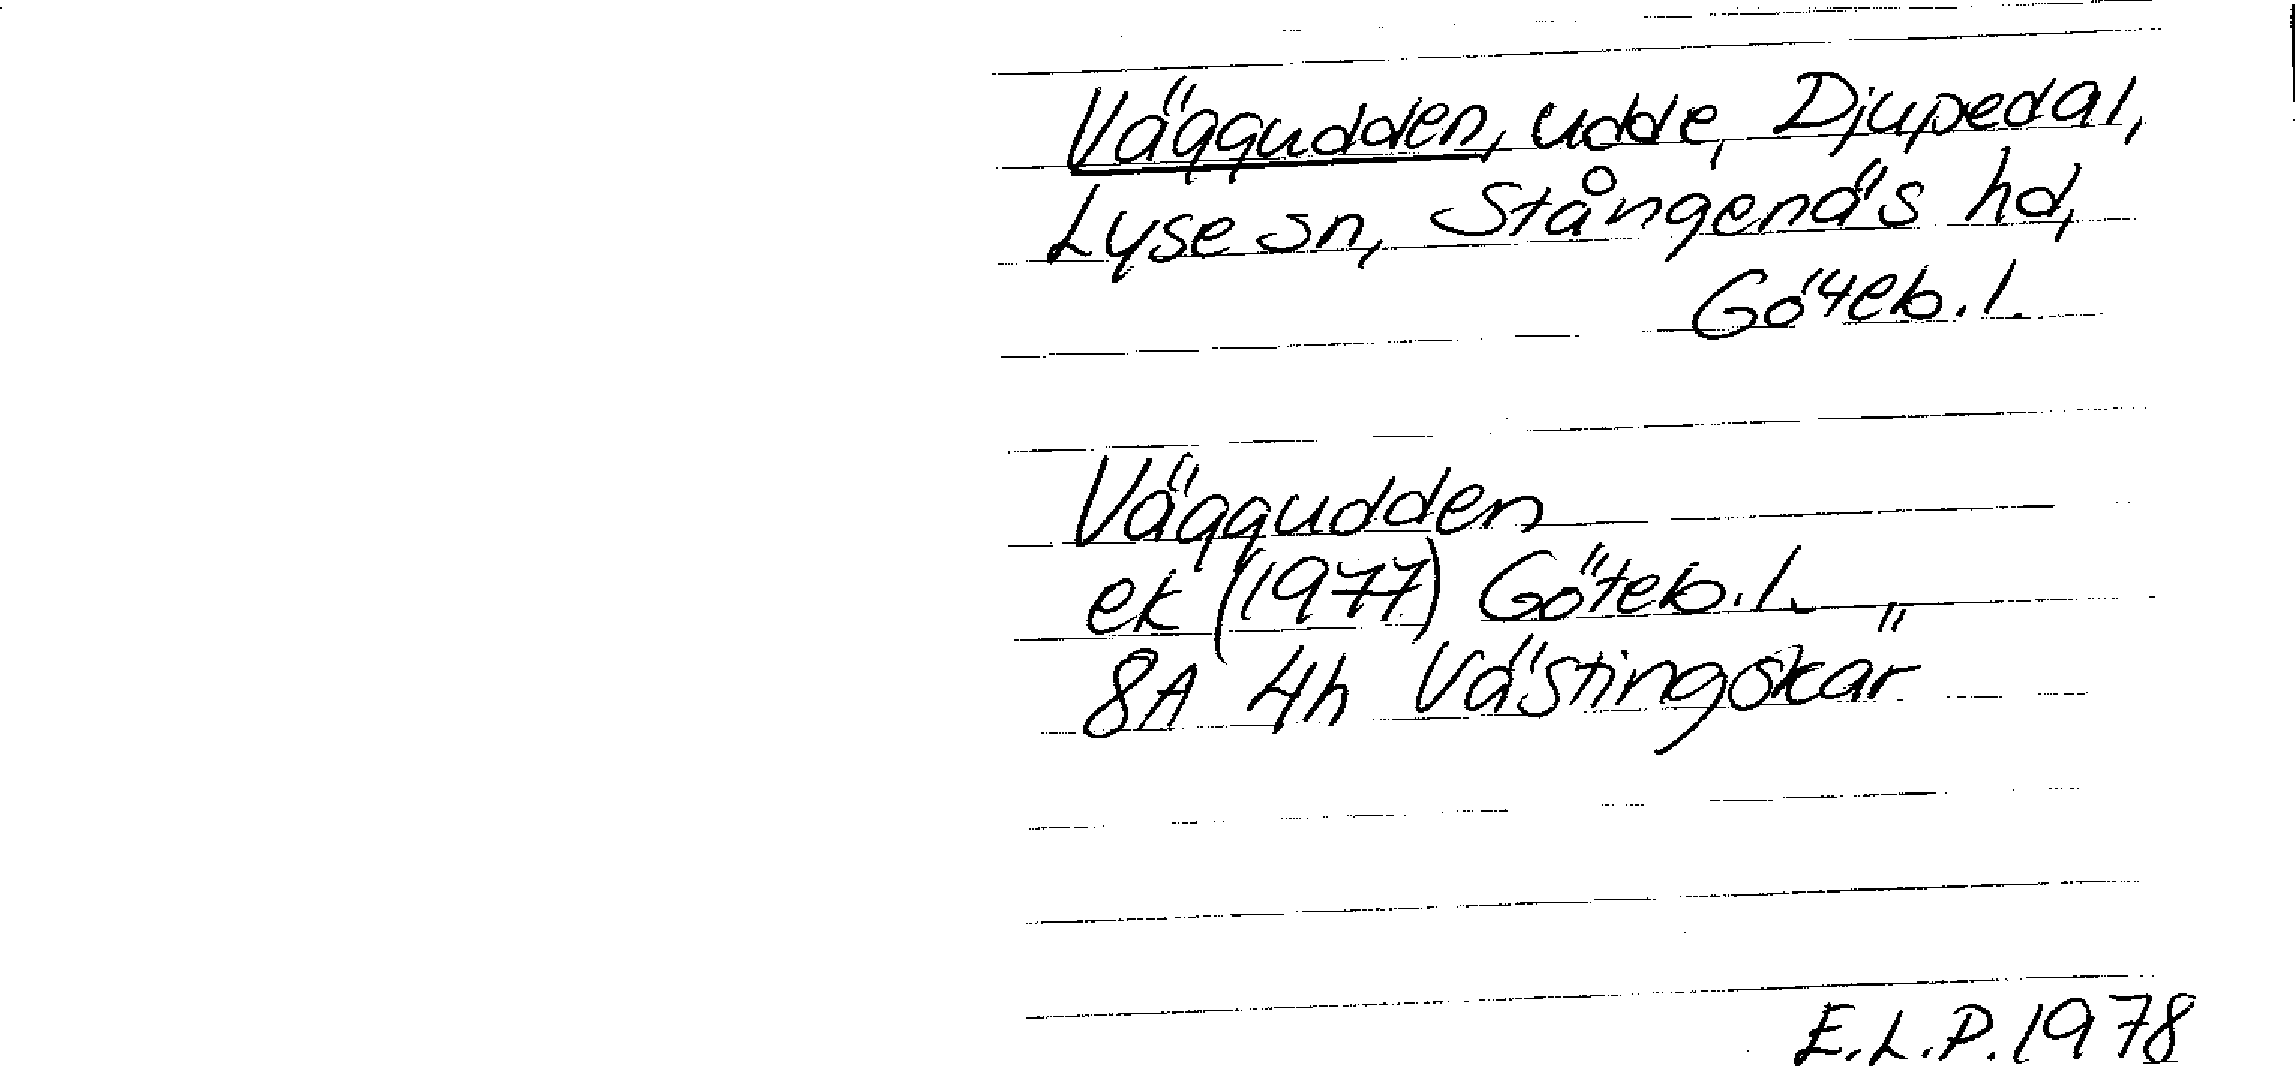 Väggudden, udde, Djupedal,
Lyse sn, Stångenäs hd,
Göteb. l.
Väggudden
ek (1977) Göteb. l.
8A 4h Västingskär
E.L.P. 1978